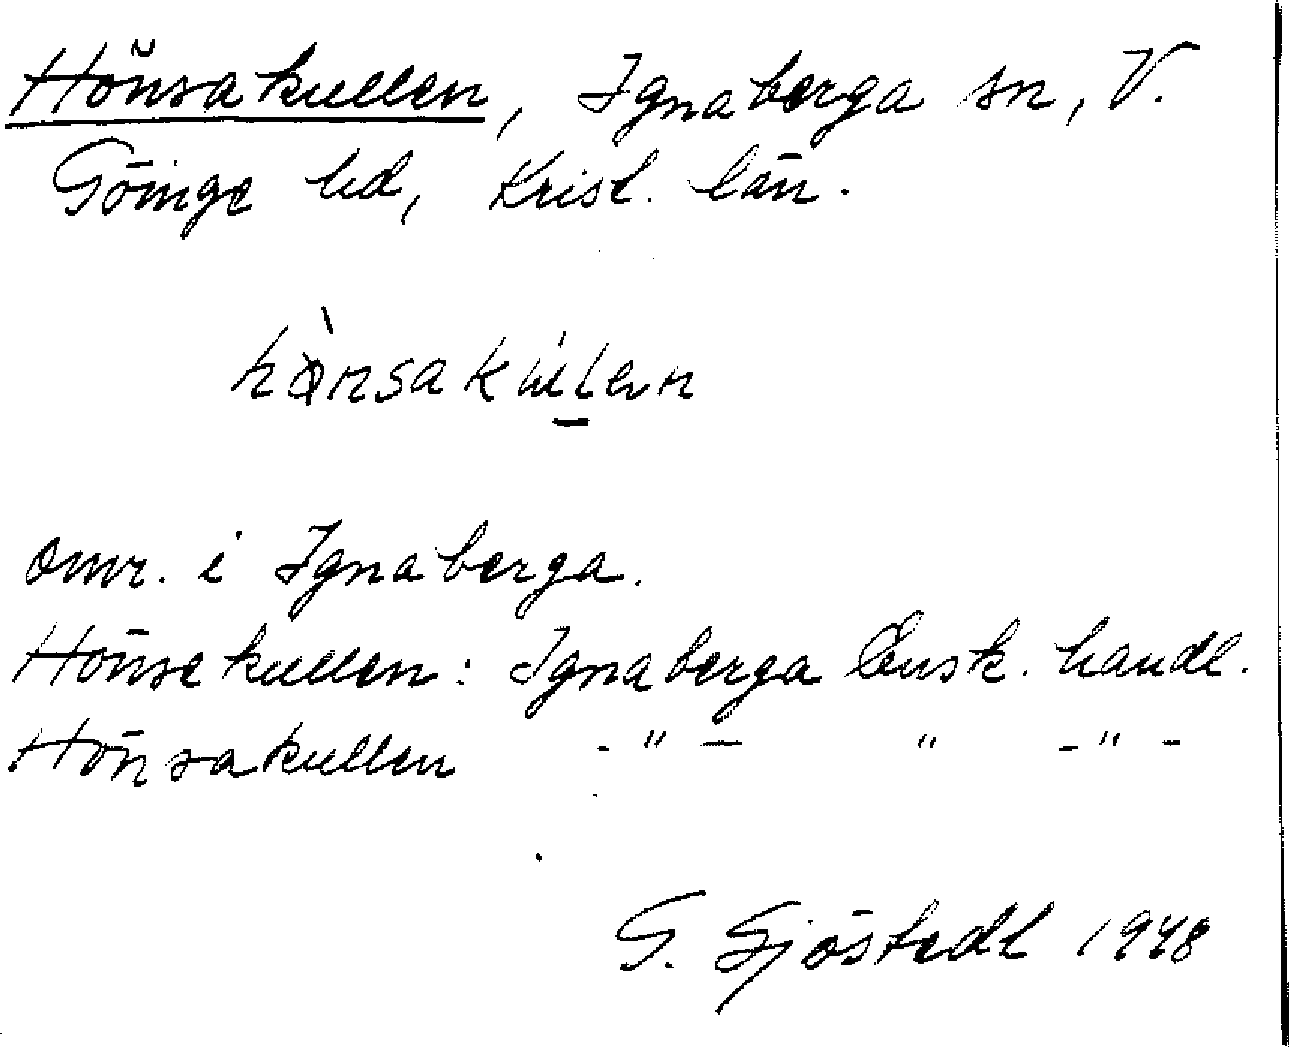 Hönsakullen, Ignaberga sn, V.
Göinge hd, Krist. län.
hø̀nsakùlen
omr. i Ignaberga.
Hönsekullen: Ignaberga ensk. handl.
Hönsakullen -"- " -"-
G. Sjöstedt 1948